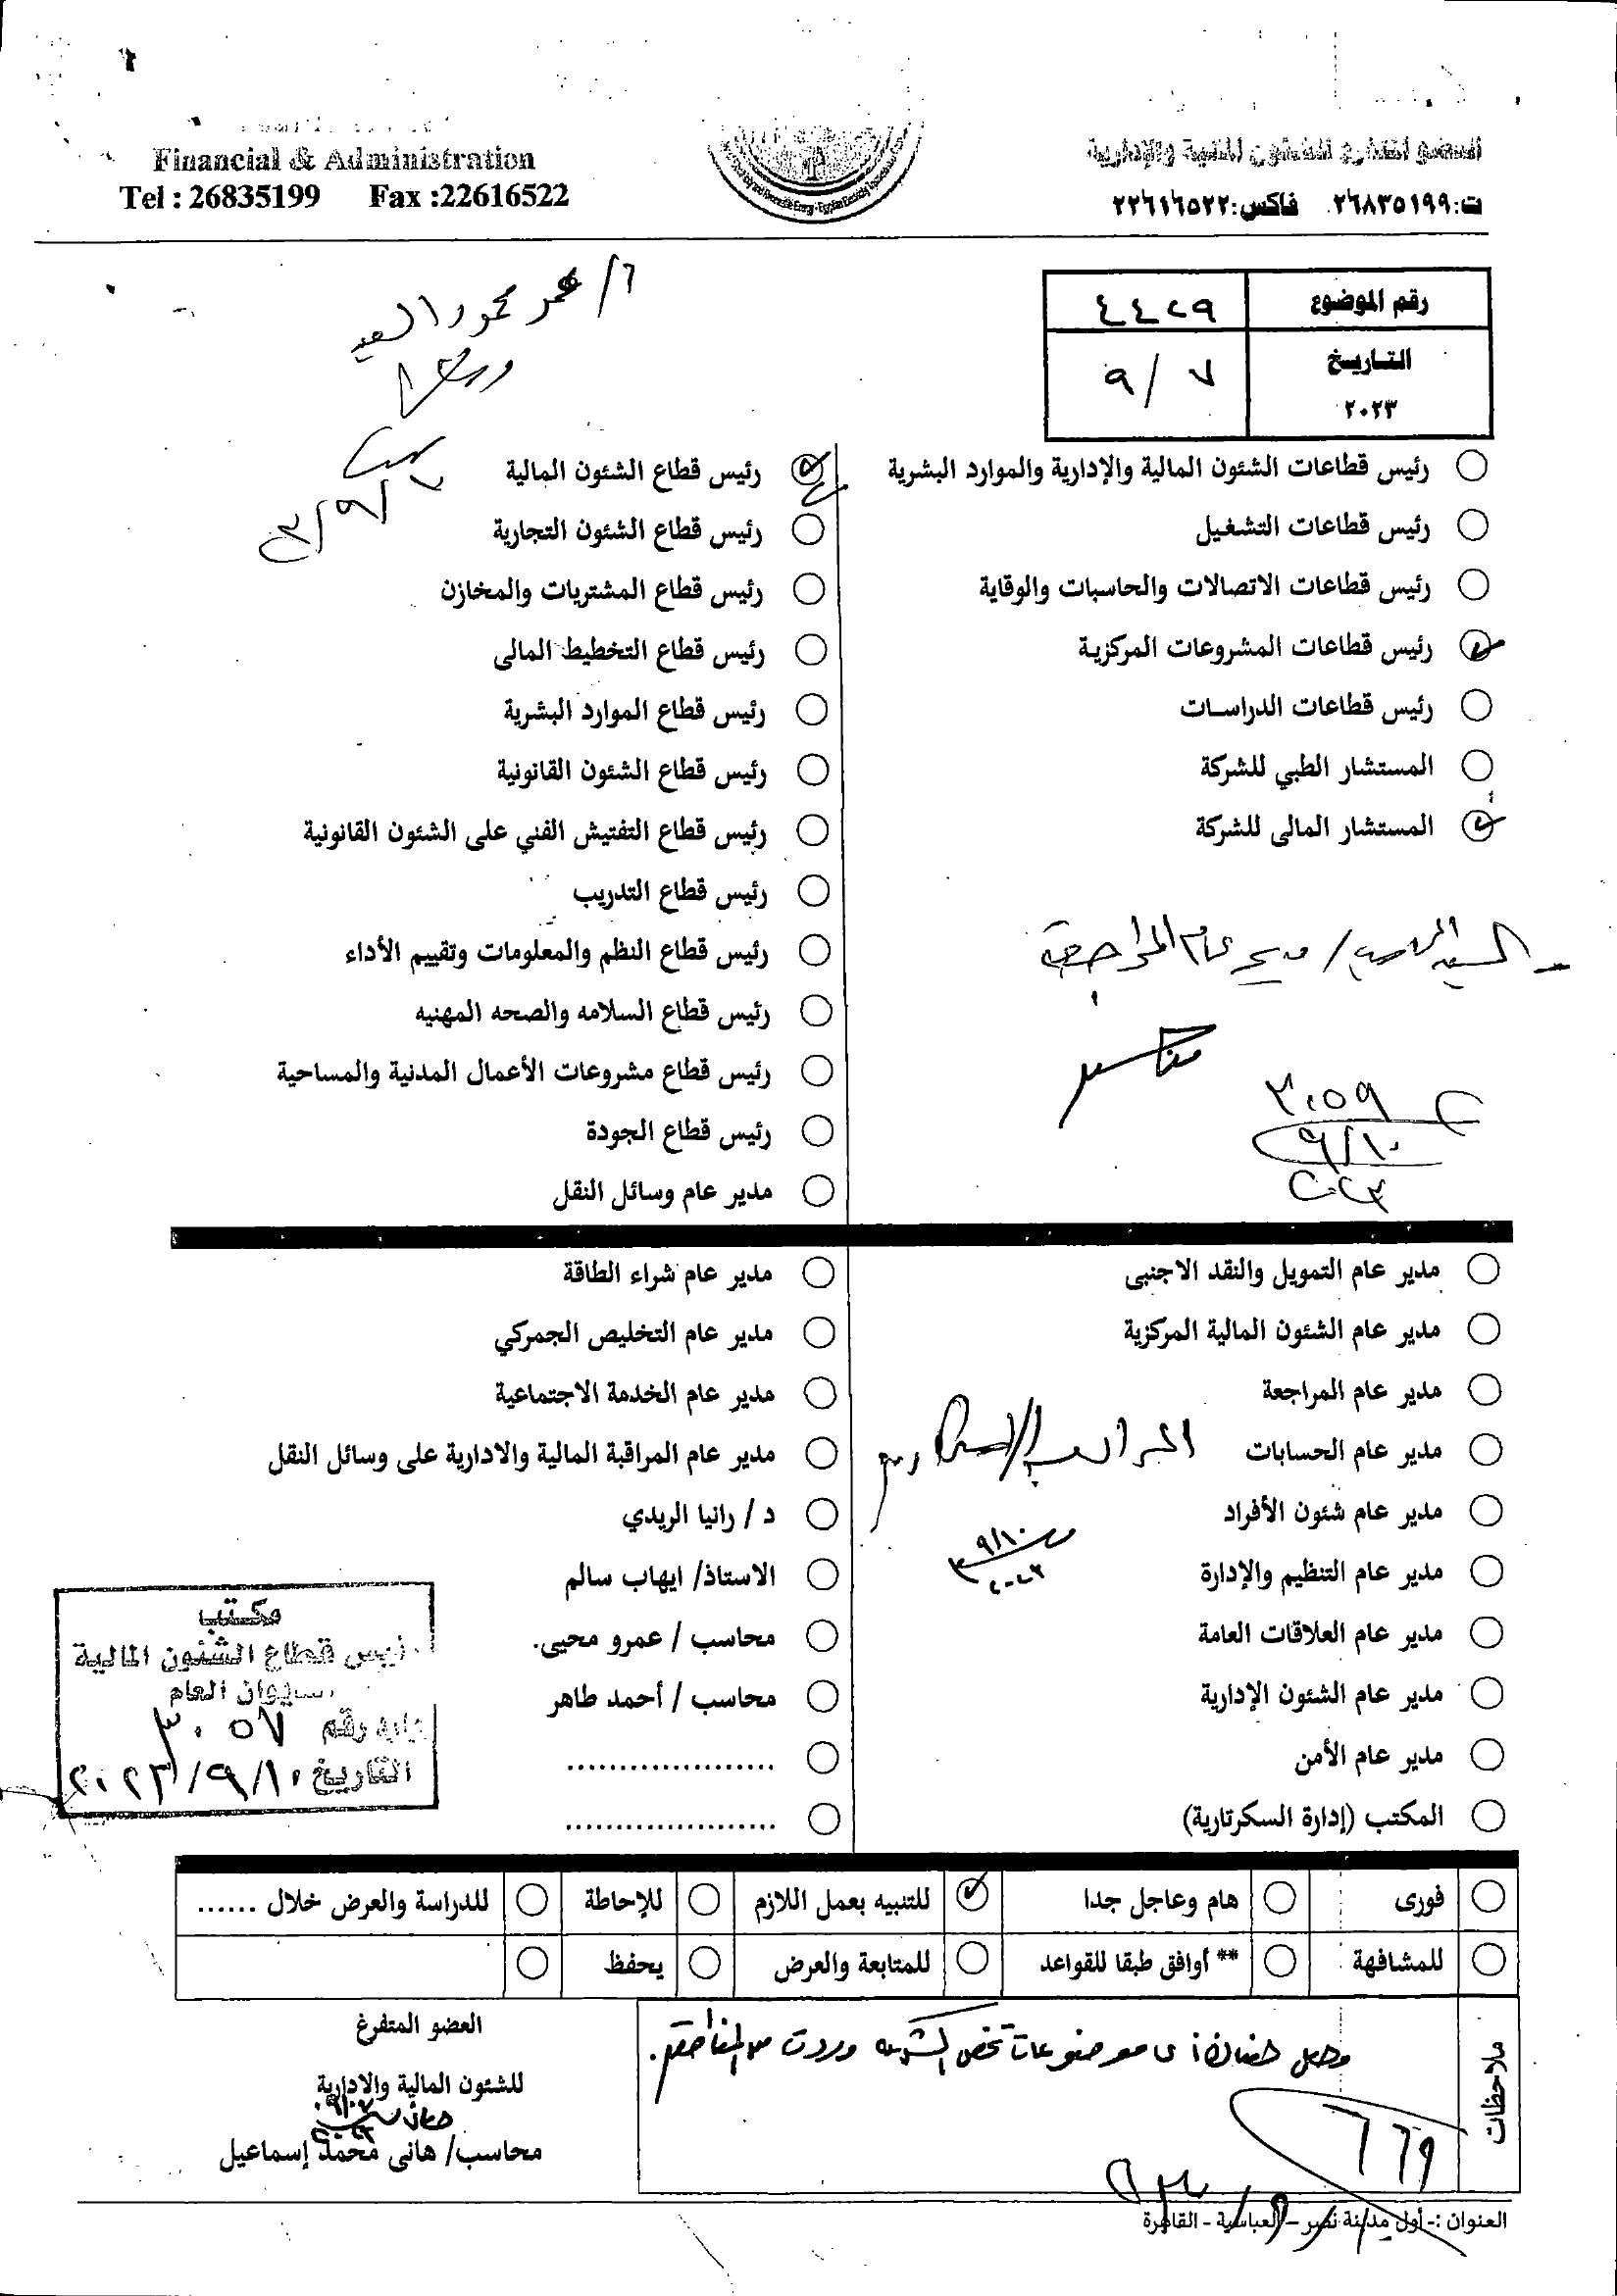 Financial & Administration
Tel : 26835199 Fax :22616522
العضو المتفرغ للشئون المالية والإدارية
ت:٢٦٨٣٥١٩٩ فاكس:٢٢٦١٦٥٢٢
رقم الموضوع ٤٤٢٩
التاريخ ٩/٧
٢٠٢٣
أ/ عمر محمود السيد
رئيس قطاعات الشئون المالية والإدارية والموارد البشرية
رئيس قطاعات التشغيل
رئيس قطاعات الاتصالات والحاسبات والوقاية
رئيس قطاعات المشروعات المركزية
رئيس قطاعات الدراسات
المستشار الطبي للشركة
المستشار المالى للشركة
السيد المحاسب/ مدير عام المراجعة
٣٠٥٩
٩/١٠
٢٠٢٣
رئيس قطاع الشئون المالية
رئيس قطاع الشئون التجارية
رئيس قطاع المشتريات والمخازن
رئيس قطاع التخطيط المالى
رئيس قطاع الموارد البشرية
رئيس قطاع الشئون القانونية
رئيس قطاع التفتيش الفني على الشئون القانونية
رئيس قطاع التدريب
رئيس قطاع النظم والمعلومات وتقييم الأداء
رئيس قطاع السلامه والصحه المهنيه
رئيس قطاع مشروعات الأعمال المدنية والمساحية
رئيس قطاع الجودة
مدير عام وسائل النقل
مدير عام التمويل والنقد الاجنبى
مدير عام الشئون المالية المركزية
مدير عام المراجعة
مدير عام الحسابات
مدير عام شئون الأفراد
مدير عام التنظيم والإدارة
مدير عام العلاقات العامة
مدير عام الشئون الإدارية
مدير عام الأمن
المكتب (إدارة السكرتارية)
٩/١٠
٢٠٢٣
مدير عام شراء الطاقة
مدير عام التخليص الجمركي
مدير عام الخدمة الاجتماعية
مدير عام المراقبة المالية والادارية على وسائل النقل
د / رانيا الريدي
الاستاذ/ ايهاب سالم
محاسب / عمرو محيى.
محاسب / أحمد طاهر
...................
...................
مكتب
رئيس قطاع الشئون المالية
الديوان العام
وارد رقم ٣٠٥٧
التاريخ ٢٠٢٣/٩/١٠
فورى هام وعاجل جدا للتنبيه بعمل اللازم للإحاطة للدراسة والعرض خلال ......
للمشافهة ** أوافق طبقا للقواعد للمتابعة والعرض يحفظ
ملاحظات
موضوعات تخص الشركة وردت من
٦٦٩
العضو المتفرغ
للشئون المالية والادارية
محاسب/ هانى محمد إسماعيل
العنوان :- أول مدينة نصر – العباسية - القاهرة